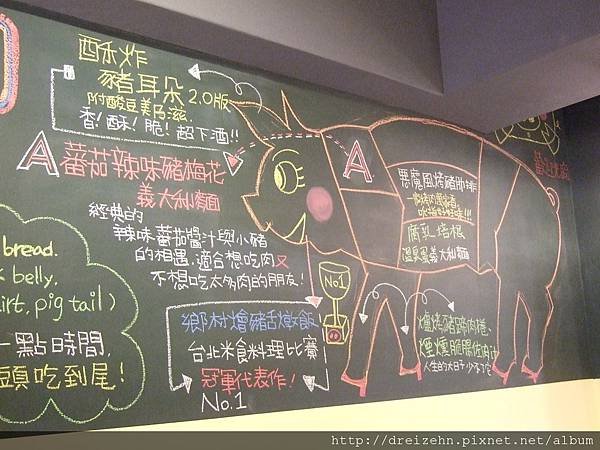 酥炸
豬耳朵2.0版
附酸豆美乃滋
香!酥!脆!超下酒!!
A 蕃茄辣味豬梅花
義大利麵
A
經典的
辣味蕃茄醬汁與小豬
的相遇,適合想吃肉又
不想吃太多肉的朋友!
惡魔風烤豬肋排
腐乳培根
溫泉蛋義大利麵
bread.
belly,
irt, pig tail)
一點時間,
頭吃到尾!
No.1
鄉村燴豬舌燉飯
台北米食料理比賽
冠軍代表作!
No.1
爐烤豬蹄肉捲、
人生的大日子少不了它
http://dreizehn.pixnet.net/album